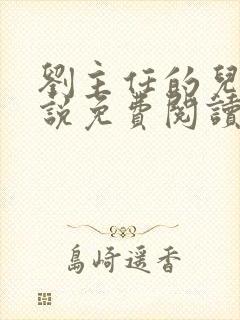 劉主任的兒
說免費閱讀
島崎遥香